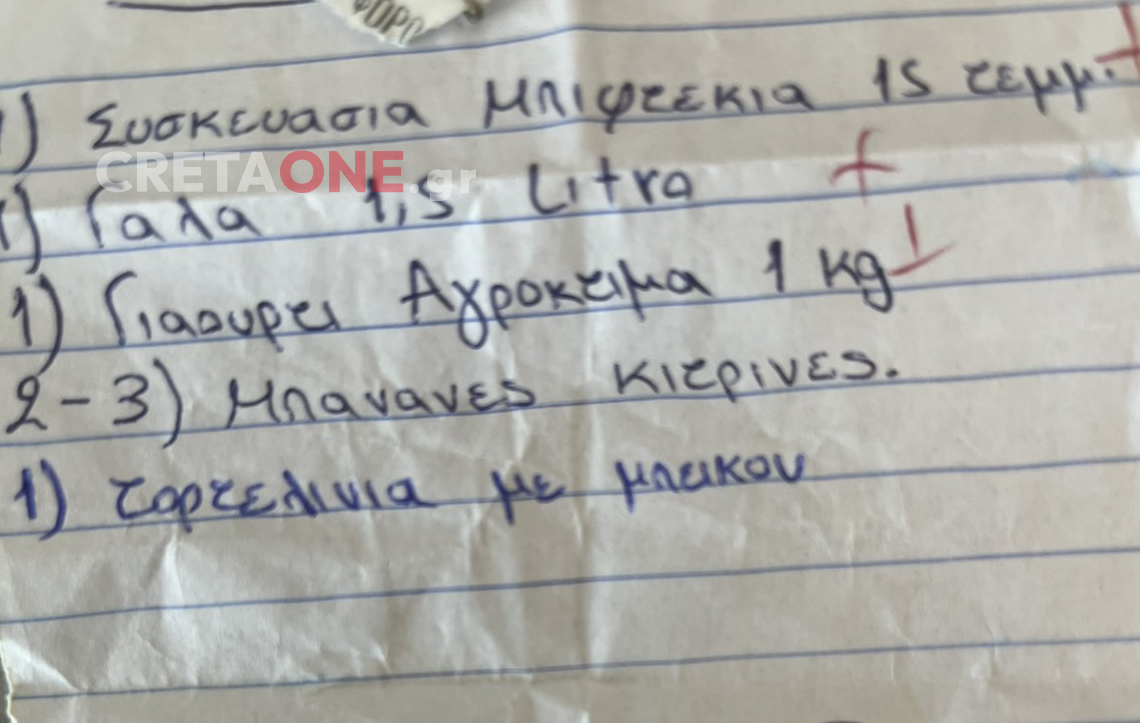 ΦΟΡΟ
1) Συσκευασια Μπιφτεκια 15 τεμμ.
CRETAONE.gr
1) Γαλα 1,5 Litra
1) Γιαουρτι Αγροκτιμα 1 kg
2-3) Μπανανες κιτρινες.
1) τορτελινια με μπεικον